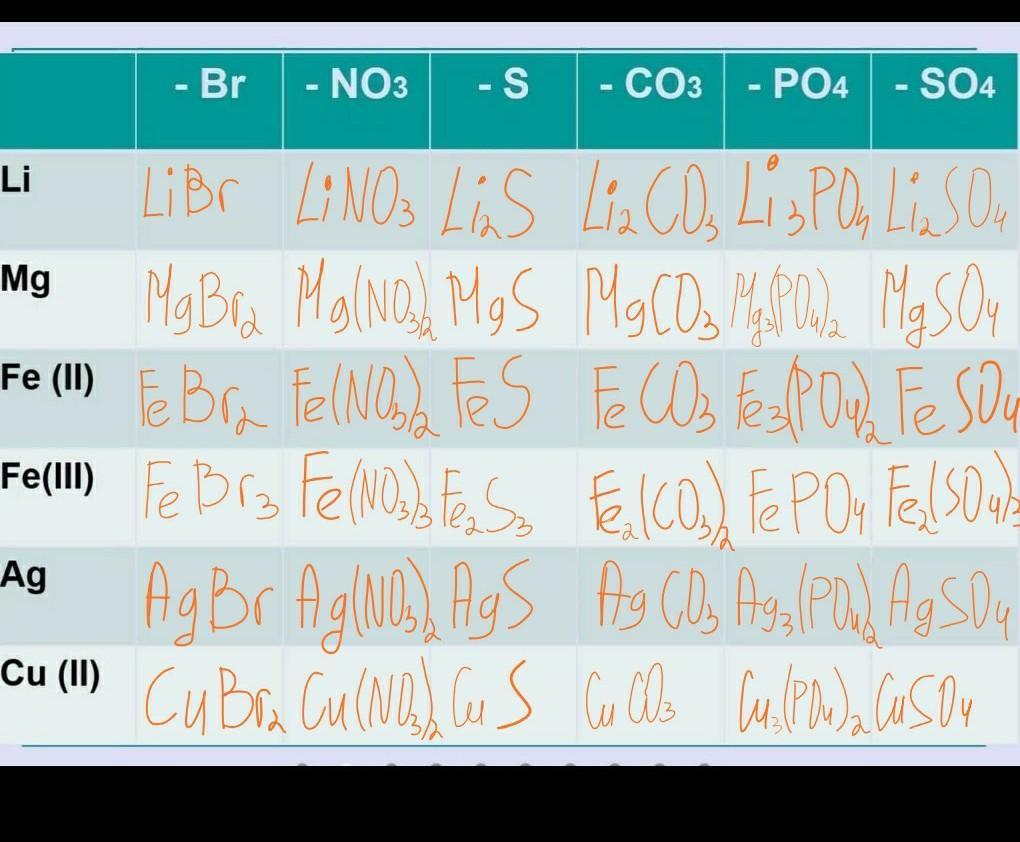 - Br - NO3 - S - CO3 - PO4 - SO4
Li LiBr LiNO3 Li2S Li2CO3 Li3PO4 Li2SO4
Mg MgBr2 Mg(NO3)2 MgS MgCO3 Mg3(PO4)2 MgSO4
Fe (II) FeBr2 Fe(NO3)2 FeS FeCO3 Fe3(PO4)2 FeSO4
Fe(III) FeBr3 Fe(NO3)3 Fe2S3 Fe2(CO3)2 FePO4 Fe2(SO4)3
Ag AgBr Ag(NO3)2 AgS AgCO3 Ag3(PO4)2 AgSO4
Cu (II) CuBr2 Cu(NO3)2 CuS CuCO3 Cu3(PO4)2 CuSO4